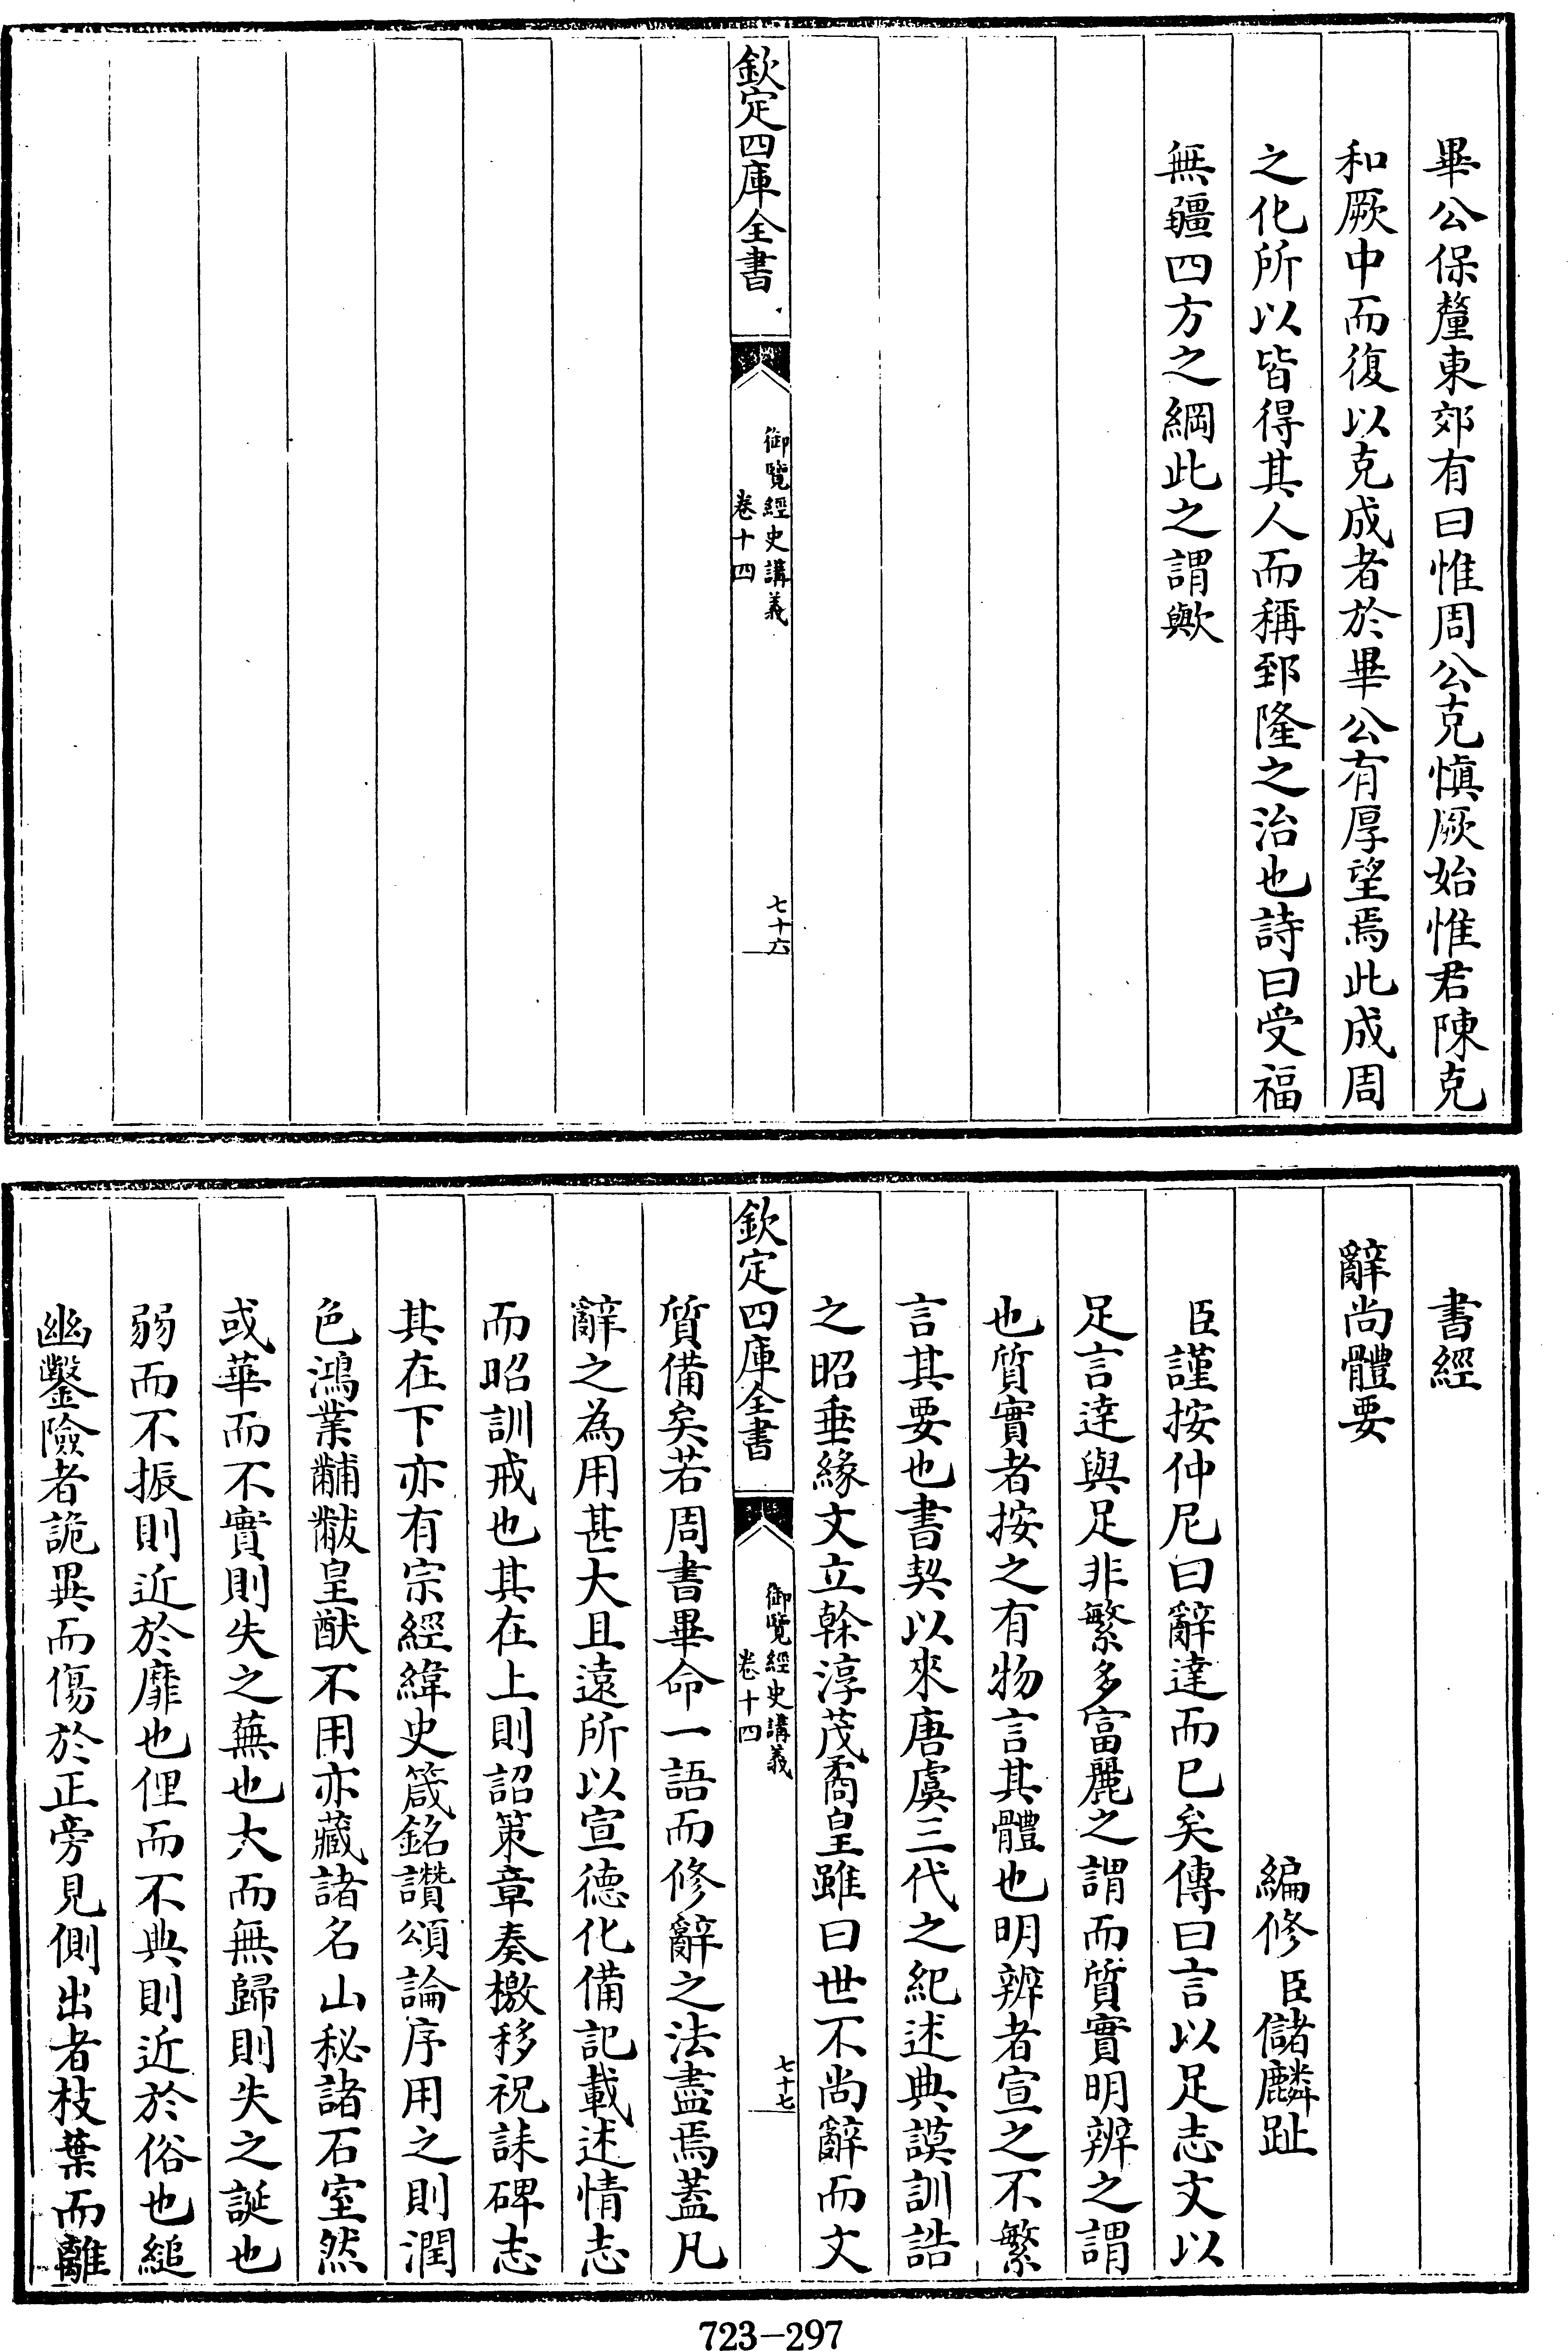 畢公保釐東郊有曰惟周公克慎厥始惟君陳克
和厥中而復以克成者於畢公有厚望焉此成周
之化所以皆得其人而稱郅隆之治也詩曰受福
無疆四方之綱此之謂歟
欽定四庫全書
御覽經史講義
卷十四
七十六
書經
辭尚體要
編修臣儲麟趾
臣謹按仲尼曰辭達而已矣傳曰言以足志文以
足言達與足非繁多富麗之謂而質實明辨之謂
也質實者按之有物言其體也明辨者宣之不繁
言其要也書契以來唐虞三代之紀述典謨訓誥
之昭垂緣文立幹淳茂矞皇雖曰世不尚辭而文
欽定四庫全書
御覽經史講義
卷十四
七十七
質備矣若周書畢命一語而修辭之法盡焉蓋凡
辭之為用甚大且遠所以宣德化備記載述情志
而昭訓戒也其在上則詔策章奏檄移祝誄碑志
其在下亦有宗經緯史箴銘讚頌論序用之則潤
色鴻業黼黻皇猷不用亦藏諸名山秘諸石室然
或華而不實則失之蕪也大而無歸則失之誕也
弱而不振則近於靡也俚而不典則近於俗也縋
幽鑿險者詭異而傷於正旁見側出者枝葉而離
723-297